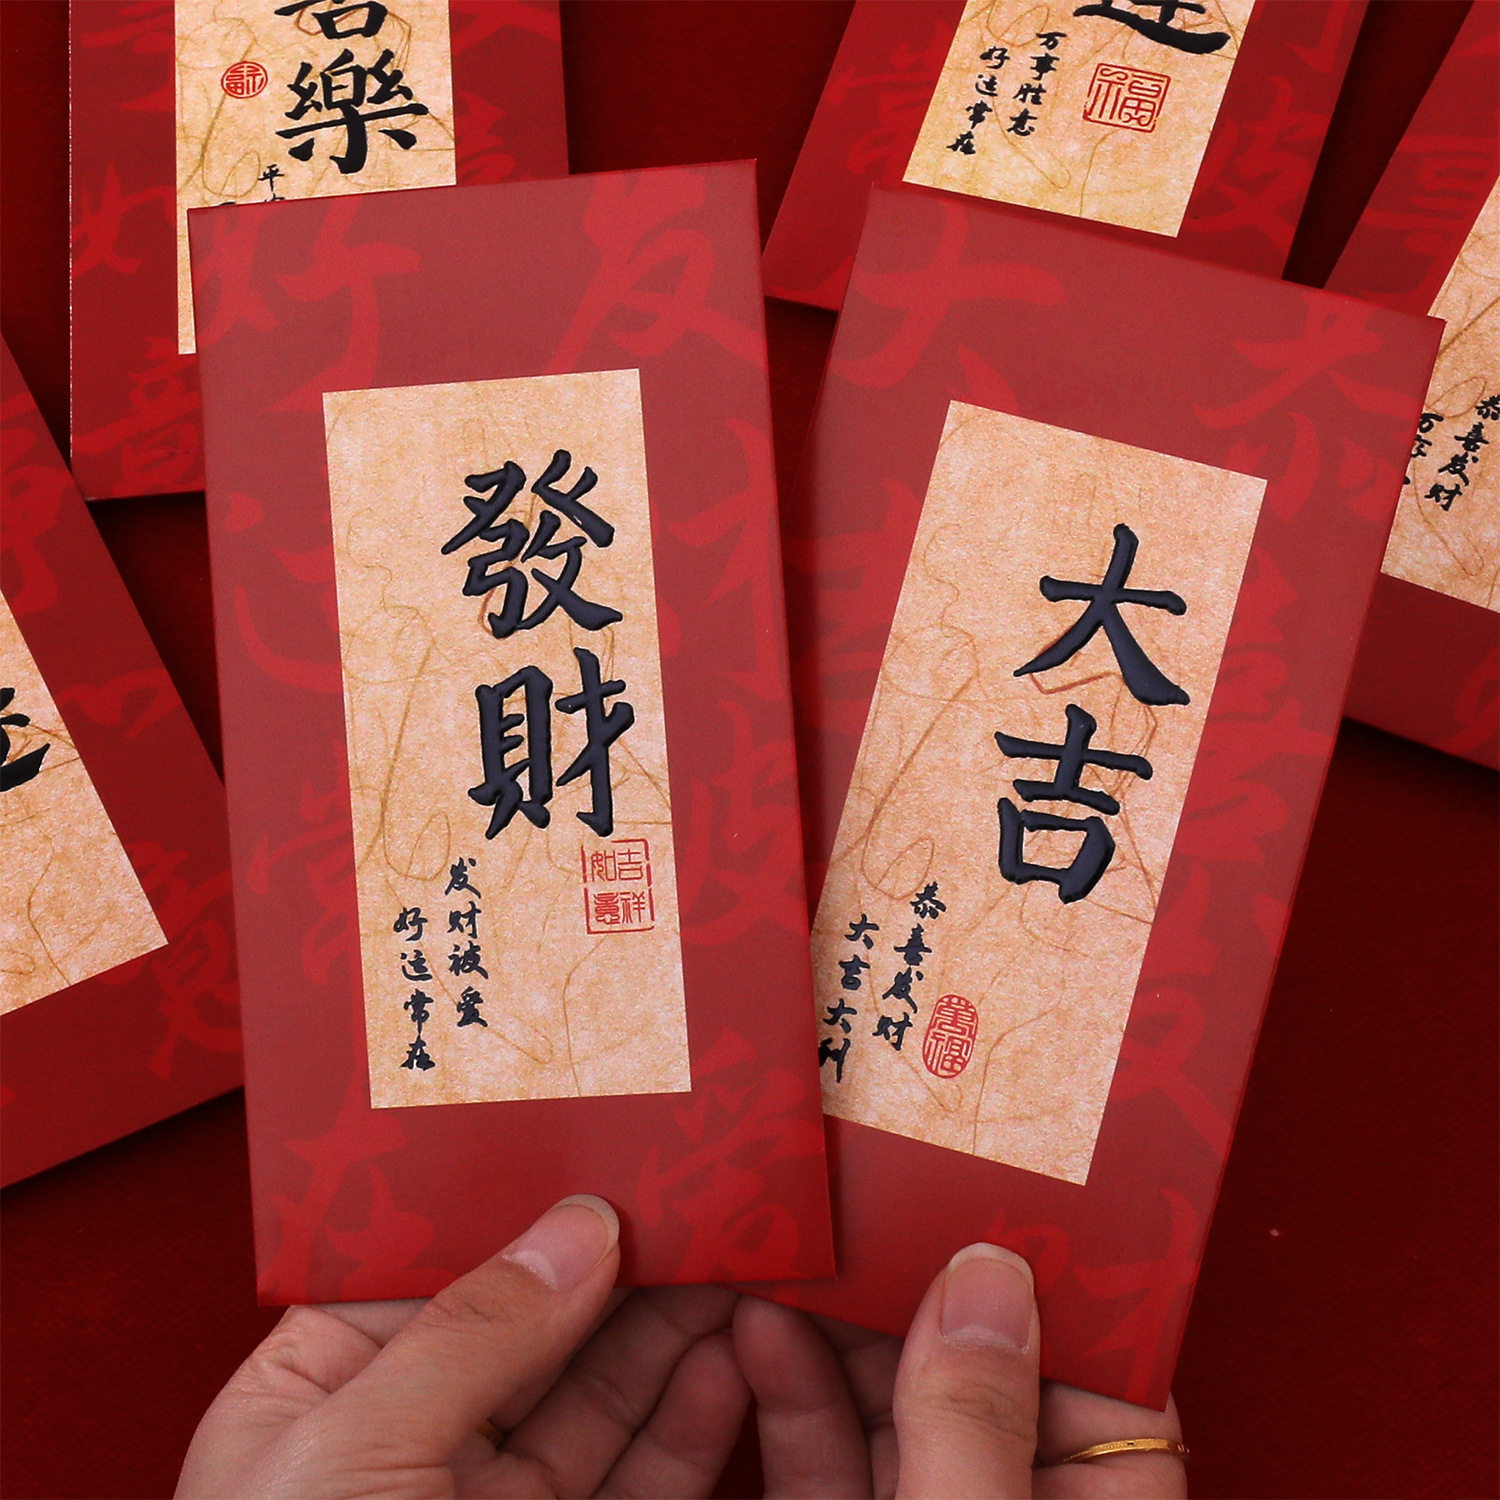 發財
发财被爱
好运常在
吉祥如意
大吉
恭喜发财
大吉大利
萬福
樂
福
平
万事胜意
好运常在
福
恭喜发财